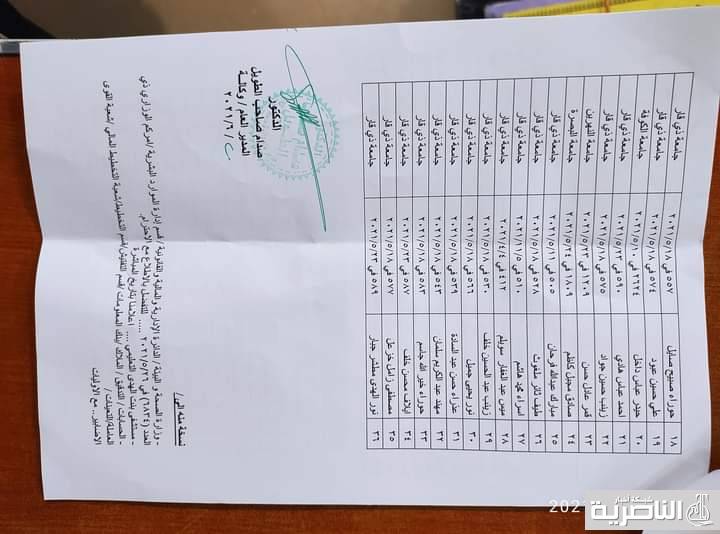 ١٨ حوراء صبيح صايل ٥٥٧ في ٢٠٢١/٥/١٨ جامعة ذي قار
١٩ علي حسين عبود ٥٧٤ في ٢٠٢١/٥/١٨ جامعة ذي قار
٢٠ حيدر عباس داخل ٢٦٢٤ في ٢٠٢١/٥/١٠ جامعة الكوفة
٢١ احمد عباس هادي ٥٩٠ في ٢٠٢١/٥/٢٣ جامعة ذي قار
٢٢ زينب حسين جواد ٥٧٥ في ٢٠٢١/٥/١٨ جامعة ذي قار
٢٣ قمر عادل حسن ١٢٠٩ في ٢٠٢١/٥/٢٣ جامعة النهرين
٢٤ صادق مجبل كاظم ١٨٠٩ في ٢٠٢١/٥/٢٤ جامعة البصرة
٢٥ مبارك عبدالله فرحان ٥٠٥ في ٢٠٢١/٥/١١ جامعة ذي قار
٢٦ طيف ثائر ٥٢٨ في ٢٠٢١/٥/١٨ جامعة ذي قار
٢٧ اسراء محمد هاشم ٥١٠ في ٢٠٢١/٥/١١ جامعة ذي قار
٢٨ ميس عبد الغفار سويلم ٤١٢ في ٢٠٢١/٤/٤ جامعة ذي قار
٢٩ زينب عبد الحسين خلف ٥٣٠ في ٢٠٢١/٥/١٨ جامعة ذي قار
٣٠ نور يحيى جميل ٥٦٦ في ٢٠٢١/٥/١٨ جامعة ذي قار
٣١ عذراء حسن عبد السادة ٥٣٩ في ٢٠٢١/٥/١٨ جامعة ذي قار
٣٢ مهند عبد الكريم سلمان ٥٤٣ في ٢٠٢١/٥/١٨ جامعة ذي قار
٣٣ حوراء خير الله جاسم ٥٨٣ في ٢٠٢١/٥/١٨ جامعة ذي قار
٣٤ ايلاف محسن خلف ٥٨٧ في ٢٠٢١/٥/٢٣ جامعة ذي قار
٣٥ مصطفى زامل خزعل ٥٧٧ في ٢٠٢١/٥/١٨ جامعة ذي قار
٣٦ نور الهدى مطشر جبار ٥٨٩ في ٢٠٢١/٥/٢٣ جامعة ذي قار
الدكتور
صدام صاحب الطويل
المدير العام / وكالة
٢٠٢١/٦/
نسخة منه الى/
- وزارة الصحة و البيئة / الدائرة الإدارية و المالية و القانونية / قسم إدارة الموارد البشرية /امركم الوزاري ذي
العدد (٦٨٣٤) في ٢٠٢١/٥/٢٦ .... للتفضل بالاطلاع مع الاحترام.
- مستشفى بنت الهدى التعليمي .... اعلامنا بتاريخ المباشرة
- الحسابات / التدقيق / الملاك /بنك المعلومات /قسم التفتيش/قسم التخطيط/شعبة التخطيط المالي /شعبة القوى
العاملة/التعيينات /
الاضابير.. مع الاوليات
شبكة أخبار
الناصرية